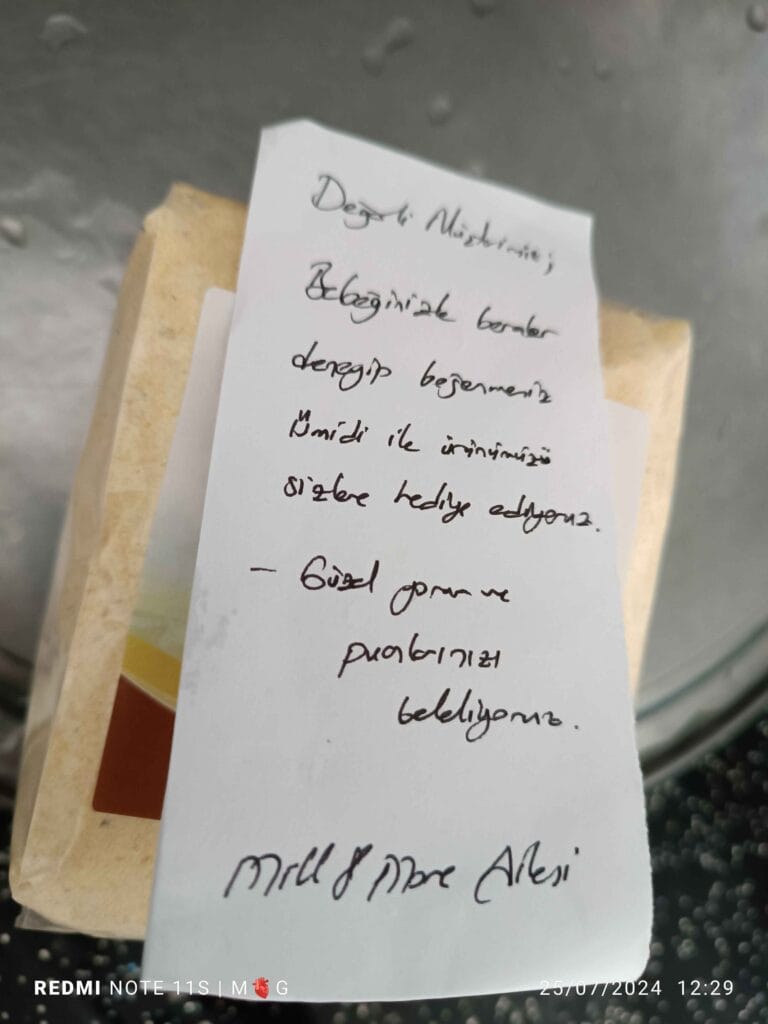 Değerli Müşterimiz;
Bebeğinizle beraber
deneyip beğenmeniz
Ümidi ile ürünümüzü
sizlere hediye ediyoruz.
- Güzel yorum ve
puanlarınızı
bekliyoruz.
Mill & More Ailesi
REDMI NOTE 11S | M🫀G
25/07/2024 12:29